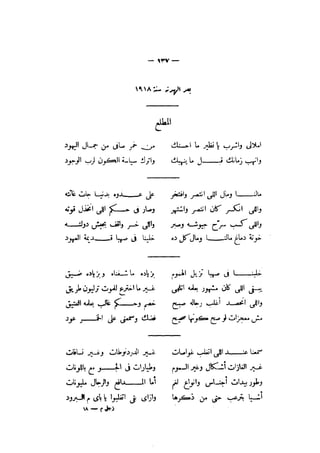 — ١٣٧ —
بعد الهدنة سنة ١٩١٨
المطلع
املالى واشرب يا نظير ما احسنك من خمر صافى من جمال العهود
وانهب زمانك قبل ما ينهبك واترك سياسة الكون لرب الوجود
مالنا ومال اللى انتصر وافتخر على عدوه بدنيا جات غلته
واللى انكسر كان انتصر واشتهر وصار فى حكم اللى انخذل قوته
واللى كسب حرح جيوشه وصبر واللى خسر والف بجيش دولته
خونة دماغ مالنا ومال كل ده خلينا فيها فى قديم العهد
خلينا فى فيها تزيل الهموم بزياده شفناه وبزياده ضيق
اللى سبق كان مشهور بقه اتلغى غير ما اخترع لفوت تريليون طريق
واللى انحصد أغلب رجاله صبح خصم وحكم واللى بقه الشقيق
مش معجزات لو صح كونها صحيح فضلك وسمعنى على الخمر عود
سمعنا عند اللى انقلب غواصات غير المدردنوطات وغير نسافات
غير الغازات أشكال وغير السموم وطيارات فى الجو مع بالونات
وطوربيدات أجناس وانواع لغم أما المدافع والرجال مليونات
أشيا بترعب حتى من ذكرها وازاى فى انقلبوا يا بأى م البرود
١٨ — م زجل